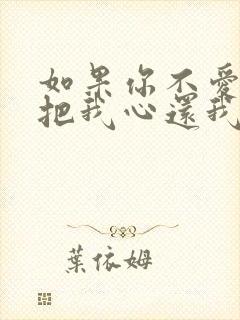 如果你不愛
把我心還我
葉依姆